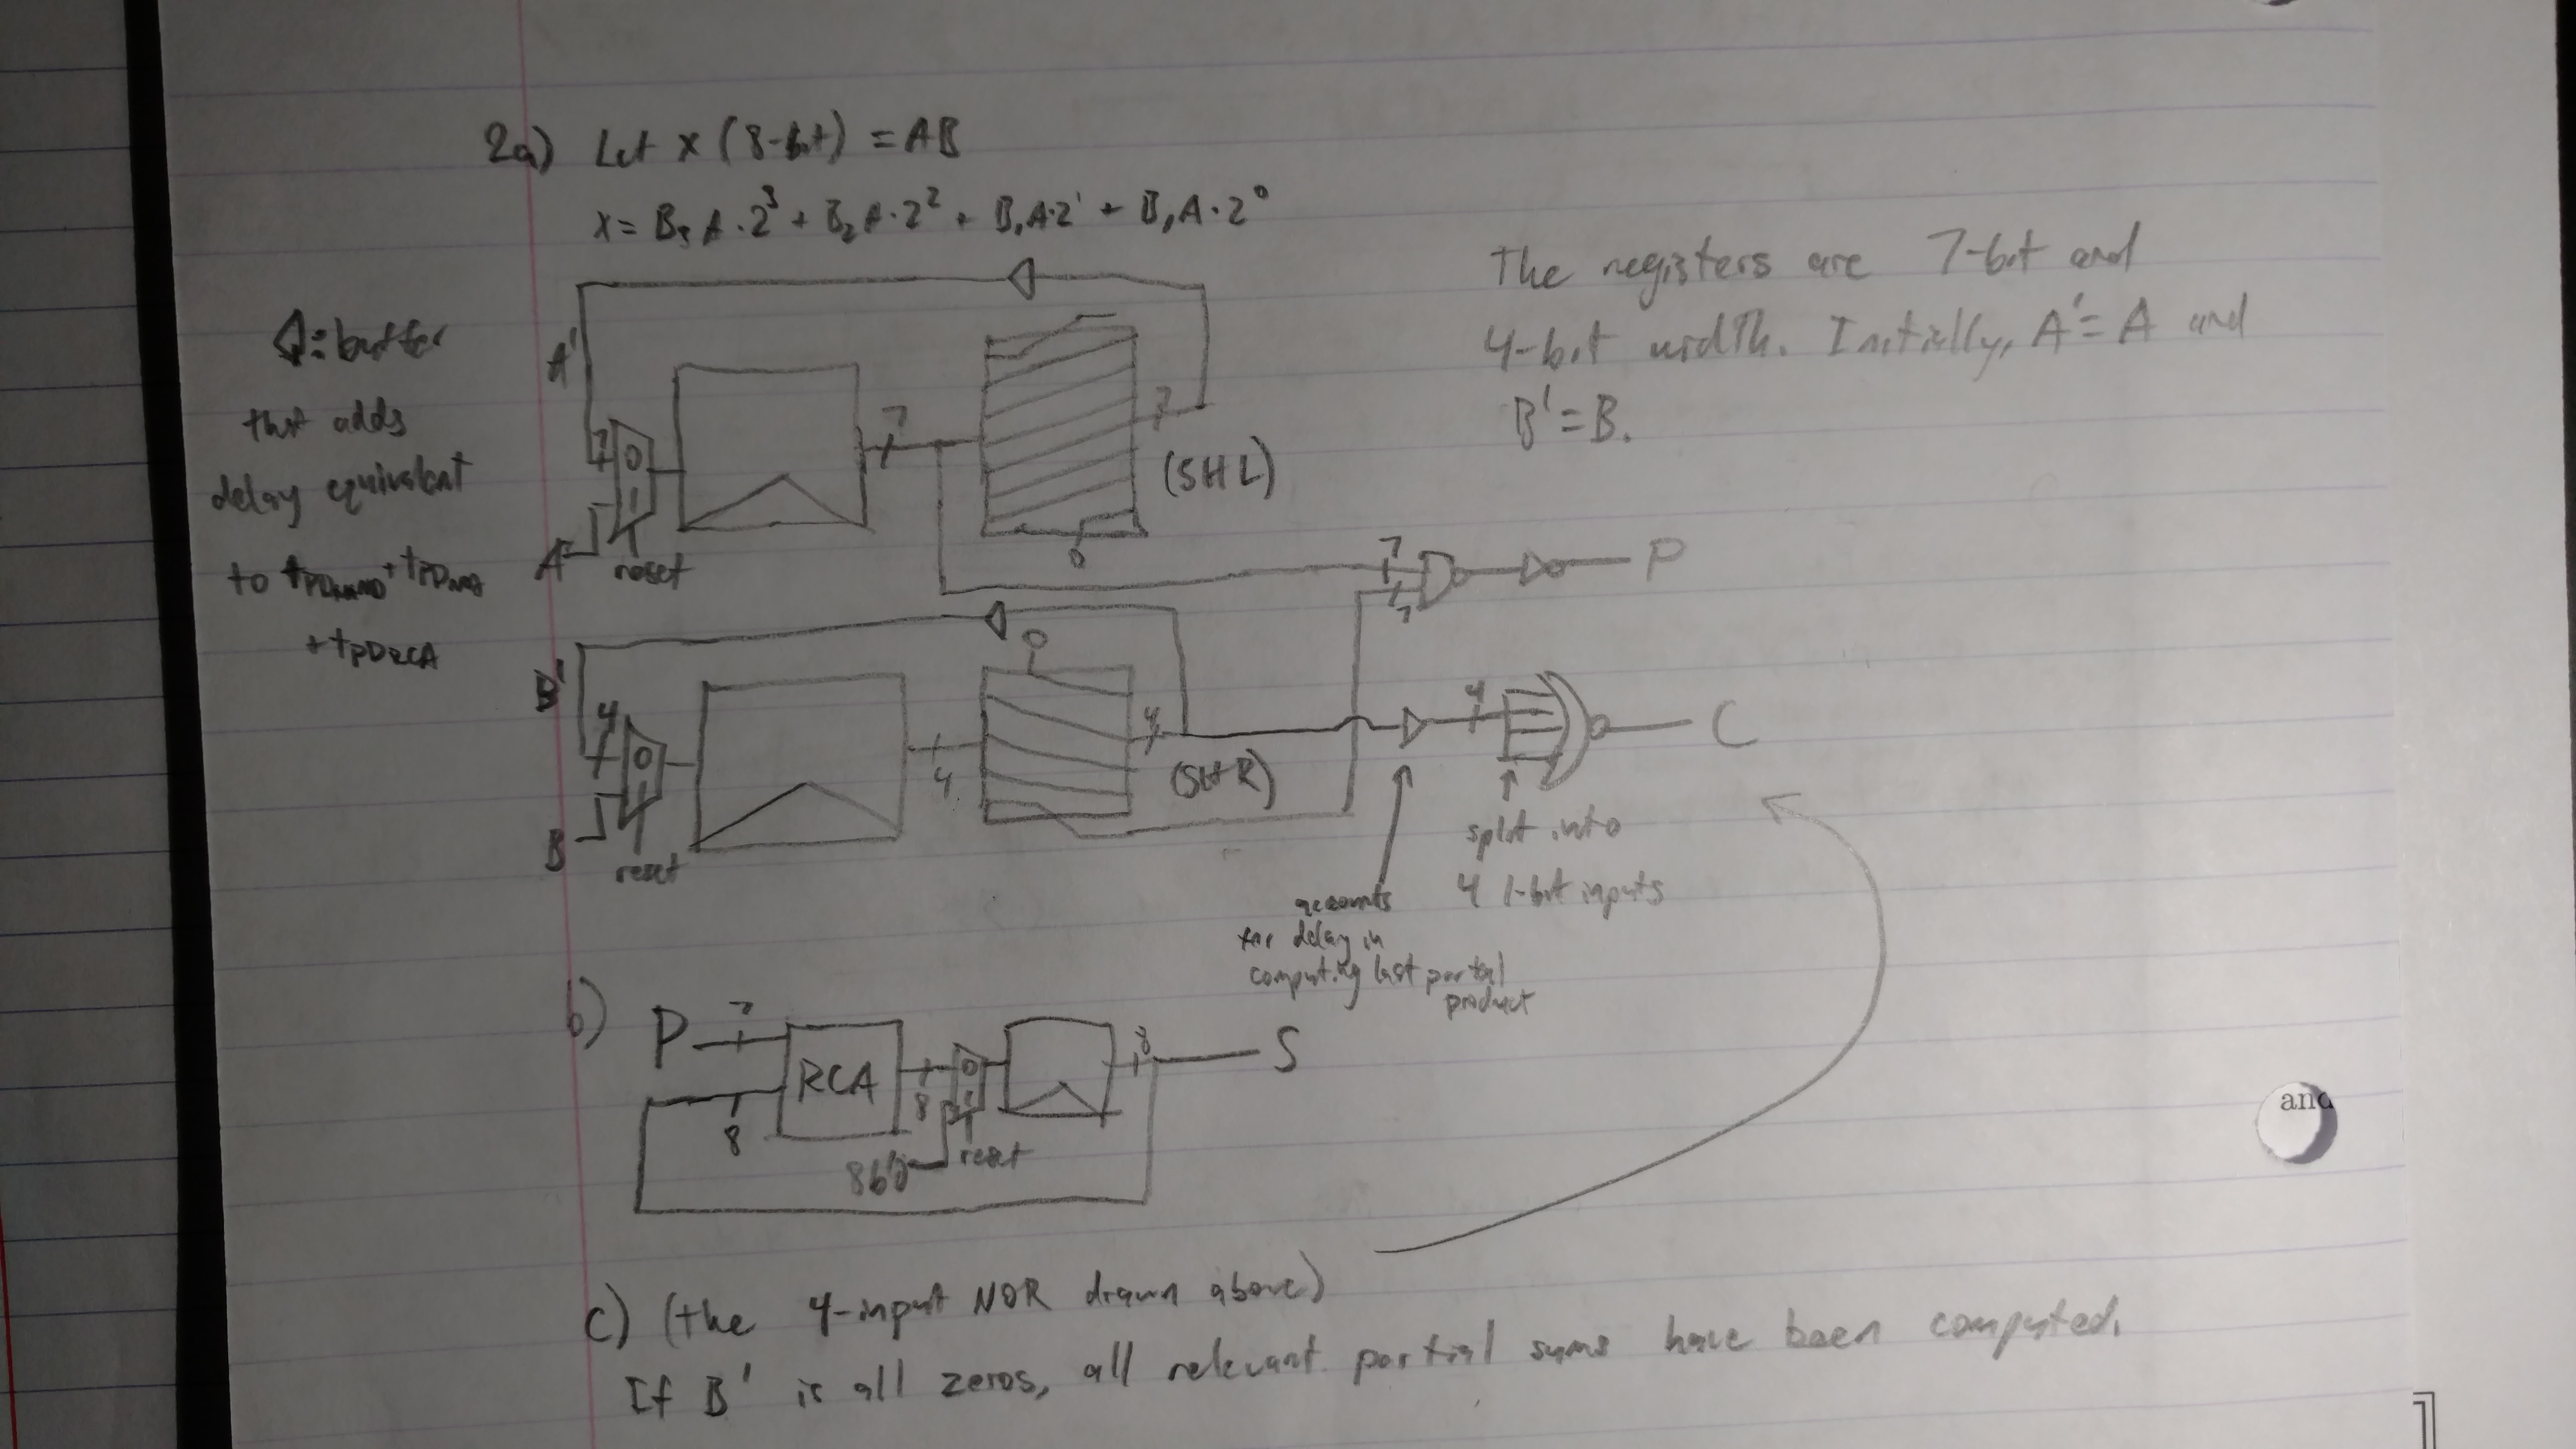 2a) Let x (8-bit) = AB
x = B₃A·2³ + B₂A·2² + B₁A·2¹ + B₁A·2⁰
The registers are 7-bit and
4-bit width. Initially, A' = A and
B' = B.
= buffer
that adds
delay equivalent
to tPDNAND + tPDINV
+ tPDRCA
A'
7
0
1
A
reset
7
7
(SHL)
0
7
7
P
B'
4
0
1
B
reset
4
0
4
(SHR)
4
C
split into
4 1-bit inputs
accounts
for delay in
computing last partial
product
b) P
7
8
RCA
8
0
1
8b'0
reset
8
S
and
c) (the 4-input NOR drawn above)
If B' is all zeros, all relevant partial sums have been computed.